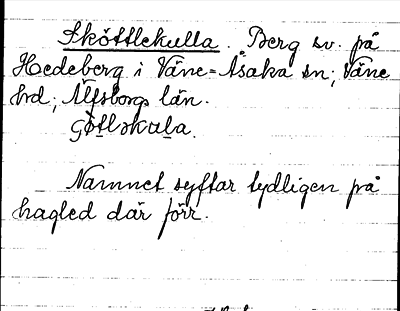 Sköttlekulla. Berg sv. på
Hedeberg i Väne-Åsaka sn; Väne
hd; Älfsborgs län.
Namnet syftar tydligen på
hagled där förr.